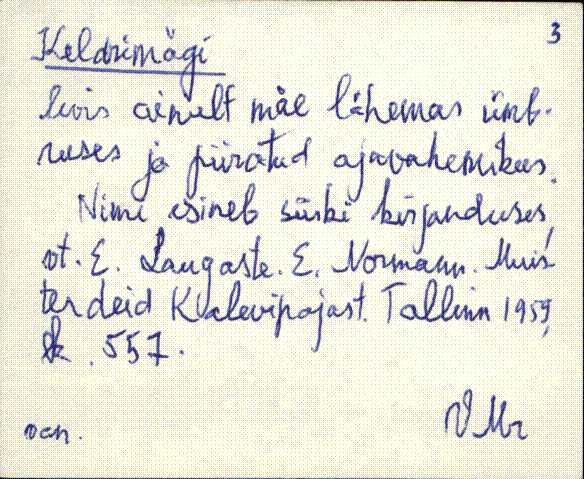 3
Keldrimägi
levis ainult mäe lähemas ümb-
ruses ja piiratud ajavahemikus.
Nimi esineb siiski kirjanduses,
vt. E. Laugaste. E. Normann. Muis-
tendeid Kalevipojast. Tallinn 1959,
lk. 557.
VMr